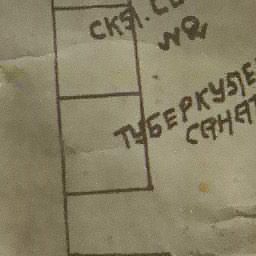 СКЛ.
№
ТУБЕРКУЛЕ
САНАТ